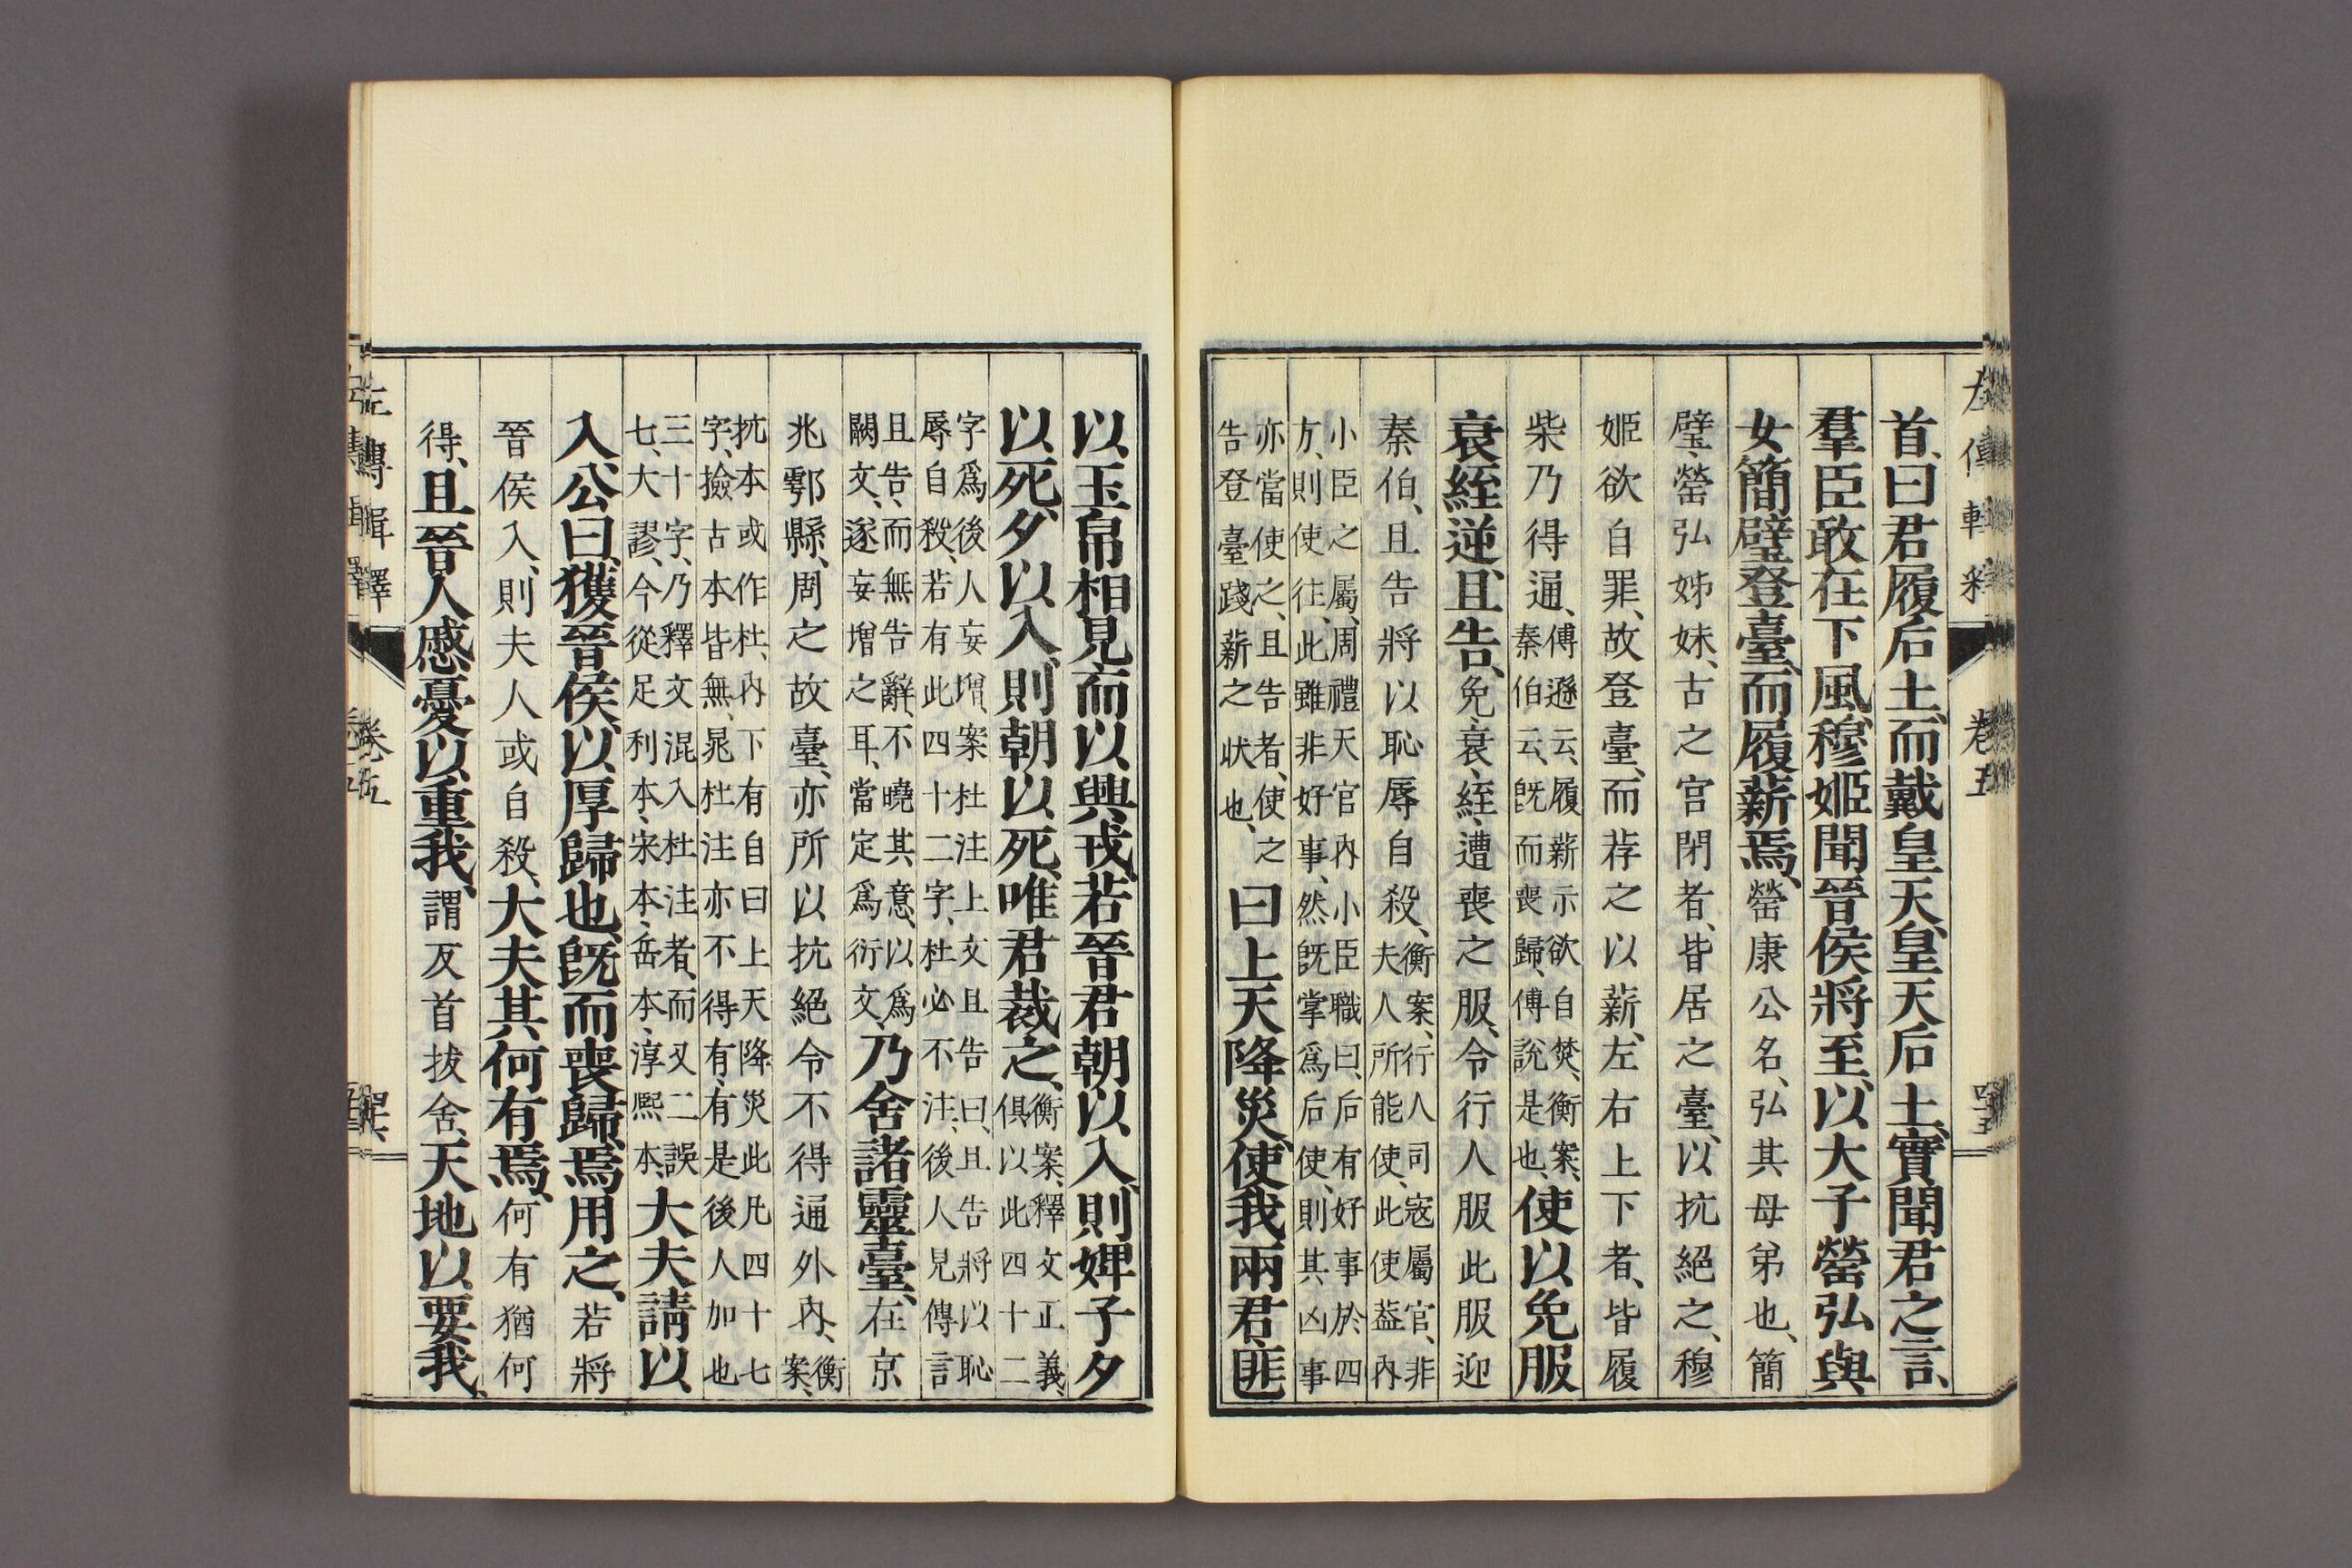 首、曰君履后土、而戴皇天、皇天后土、實聞君之言、
羣臣敢在下風、穆姬聞晉侯將至、以大子罃弘與
女簡璧登臺、而履薪焉、罃康公名、弘其母弟也、簡
璧、罃弘姊妹、古之宮閉者、皆居之臺、以抗絕之、穆
姬欲自罪、故登臺、而荐之以薪、左右上下者、皆履
柴乃得通、傅遜云、履薪示欲自焚、衡案、
秦伯云、旣而喪歸、傅說是也、使以免服
衰絰逆、且告、免、衰、絰、遭喪之服、令行人服此服迎
秦伯、且告將以恥辱自殺、衡案、行人司寇屬官、非
夫人所能使、此使葢內
小臣之屬、周禮天官內小臣職曰、后有好事於四
方、則使往、此雖非好事、然旣掌爲后使、則其凶事
亦當使之、且告者、使之
告登臺踐薪之狀也、曰上天降災、使我兩君、匪
左傳輯釋 卷五
以玉帛相見、而以興戎、若晉君朝以入、則婢子夕
以死、夕以入、則朝以死、唯君裁之、衡案、釋文正義、
俱以此四十二
字爲後人妄增、案杜注上文且告曰、且告將以恥
辱自殺、若有此四十二字、杜必不注、後人見傳言
且告、而無告辭、不曉其意、以爲
闕文、遂妄增之耳、當定爲衍文、乃舍諸靈臺、在京
兆鄠縣、周之故臺、亦所以抗絕令不得通外內、衡
案、
抗本或作杜、內下有自曰上天降災此凡四十七
字、撿古本皆無、晁杜注亦不得有、有是後人加也
三十字、乃釋文混入杜注者、而又二誤
七、大謬、今從足利本、宋本、岳本、淳熙本、大夫請以
入、公曰、獲晉侯、以厚歸也、旣而喪歸、焉用之、若將
晉侯入、則夫人或自殺、大夫其何有焉、何有猶何
得、且晉人慼憂以重我、謂反首拔舍、天地以要我、
左傳輯釋 卷五